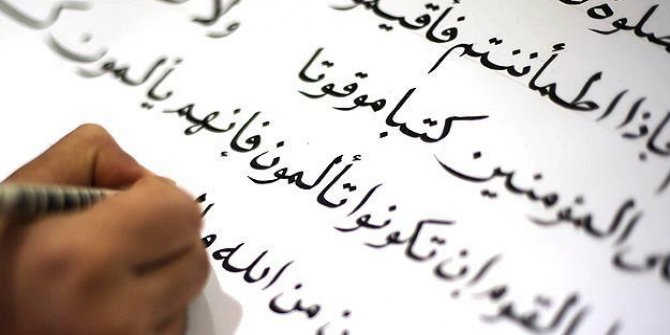 الصلوة
فاذا اطمأننتم فأقيمو
المؤمنين كتبا موقوتا ولا
القوم ان تكونوا تألمون فإنهم يألمون
من الله